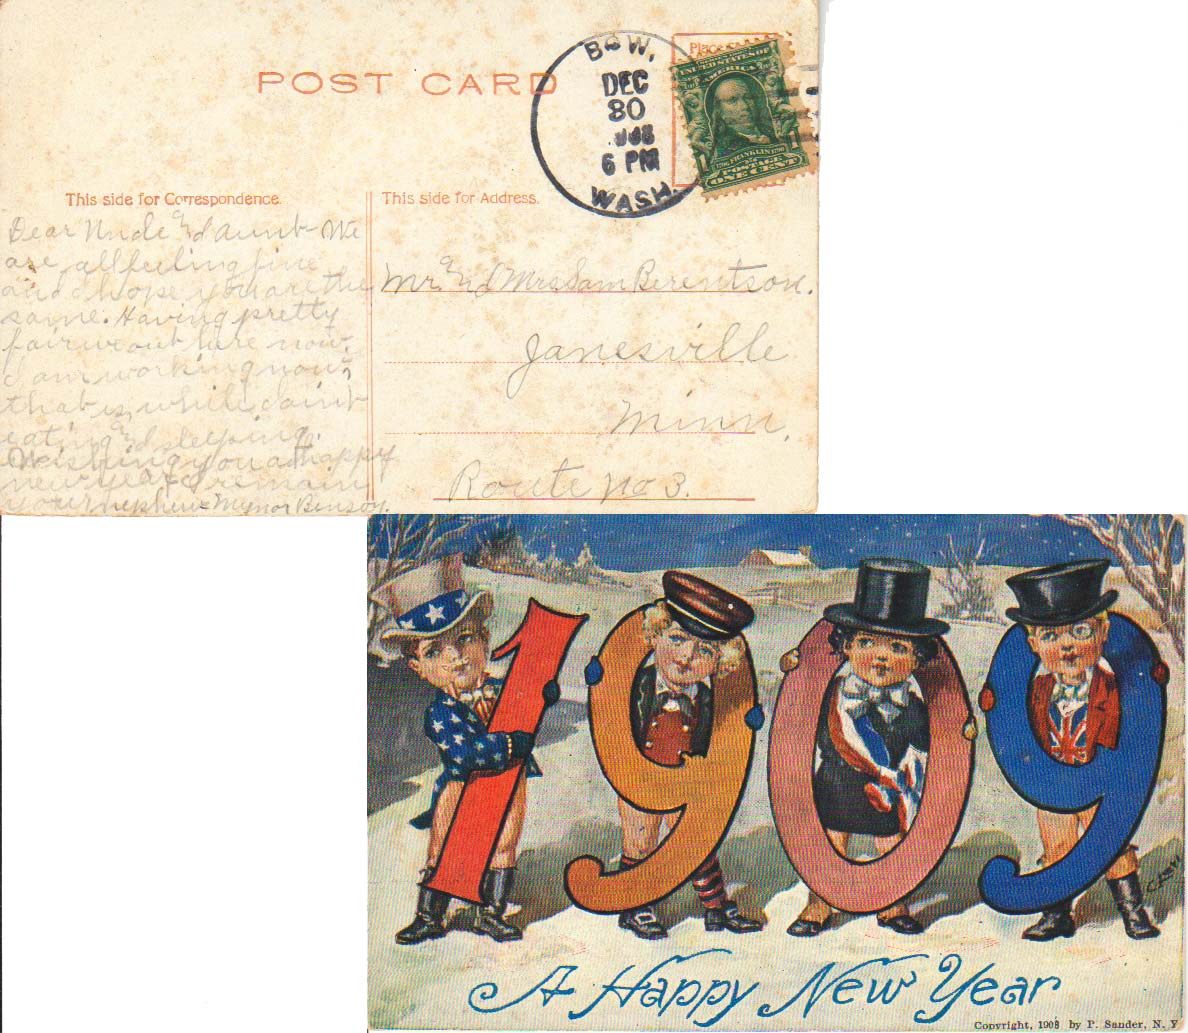 POST CARD
BOW,
DEC
30
6 PM
WASH.
Place
UNITED STATES OF
AMERICA
1706 FRANKLIN 1790
POSTAGE
ONE CENT
This side for Correspondence.
This side for Address.
Dear Uncle and aunt - We
are all feeling fine
and hope you are the
same. Having pretty
fair weout here now.
I am working now,
that is while I aint
eating and sleeping.
Wishing you a happy
new year I remain
your nephew Mynor Benson.
Mr. and Mrs Sam Berentson.
Janesville
Minn.
Route no 3.
1909
A Happy New Year
Copyright, 1908 by P. Sander, N. Y